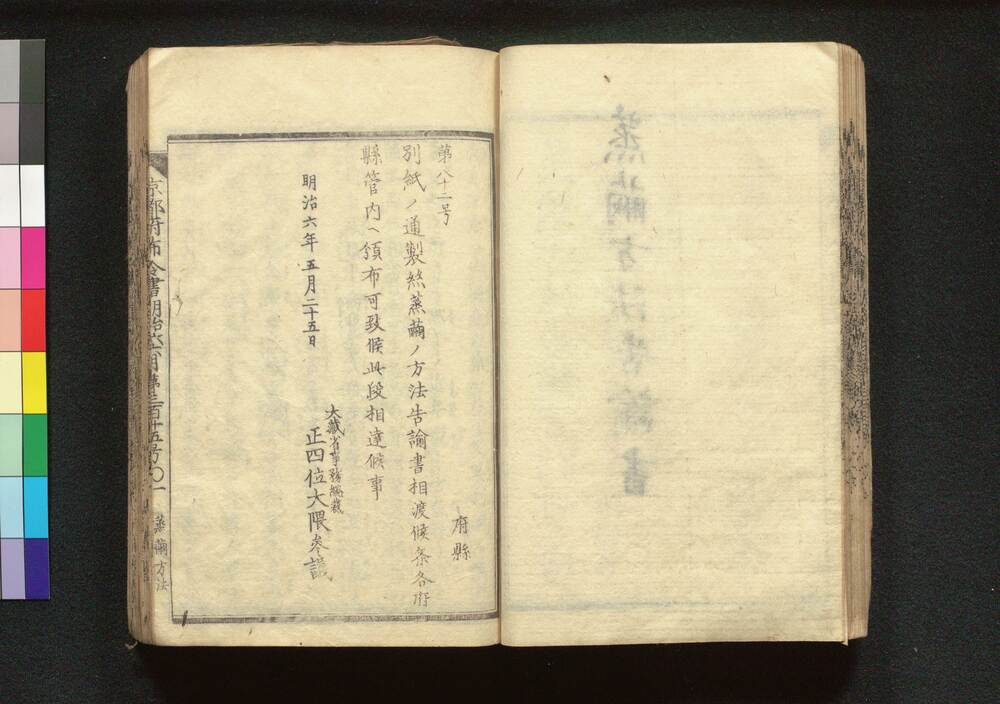 蒸繭方法告諭書
第八十二号
府縣
別紙ノ通製絲蒸繭ノ方法告諭書相渡候条各府
縣管内ヘ頒布可致候此段相達候事
明治六年五月二十五日
大蔵省事務総裁
正四位大隈参議
京都府布令書明治六年第二百十五号〇一
蒸繭方法